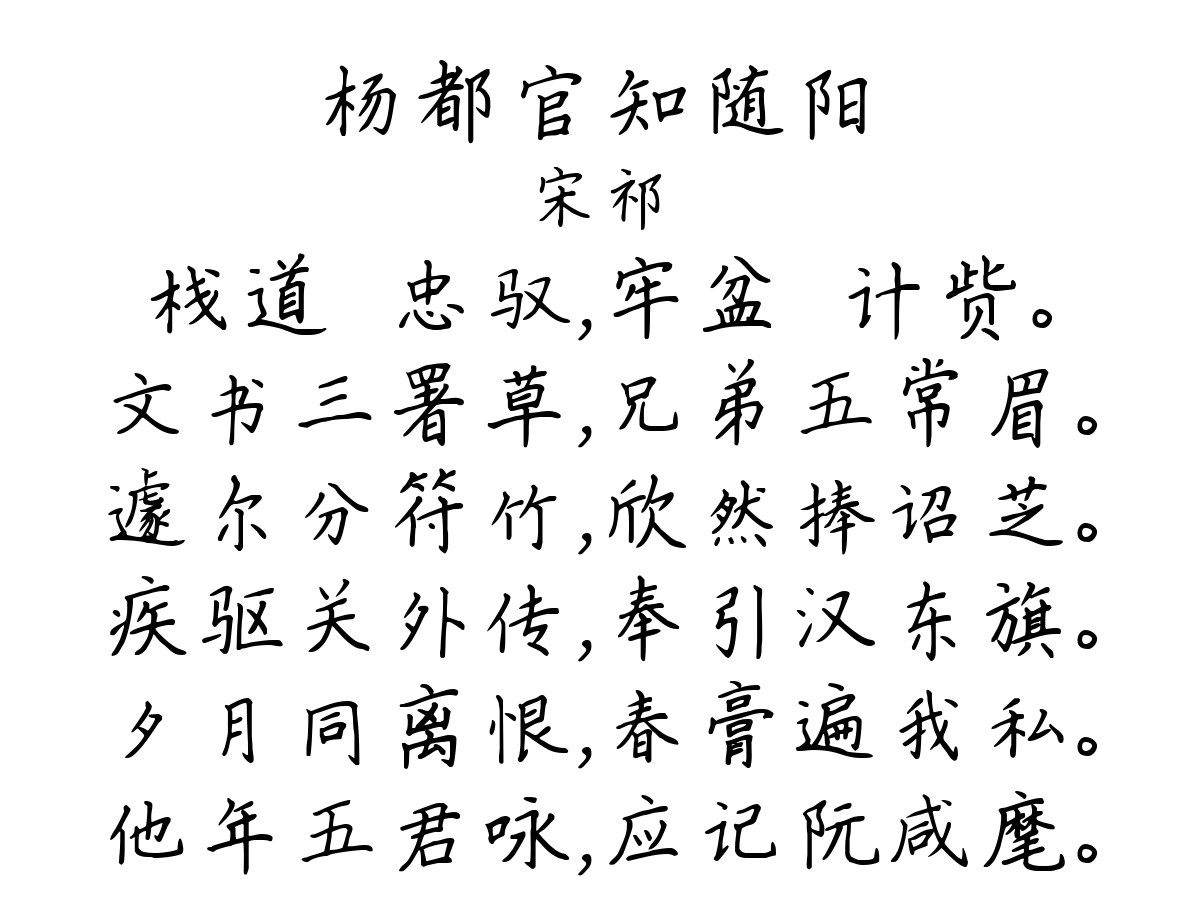 杨都官知随阳
宋祁
栈道 忠驭,牢盆 计赀。
文书三署草,兄弟五常眉。
遽尔分符竹,欣然捧诏芝。
疾驱关外传,奉引汉东旗。
夕月同离恨,春膏遍我私。
他年五君咏,应记阮咸麾。